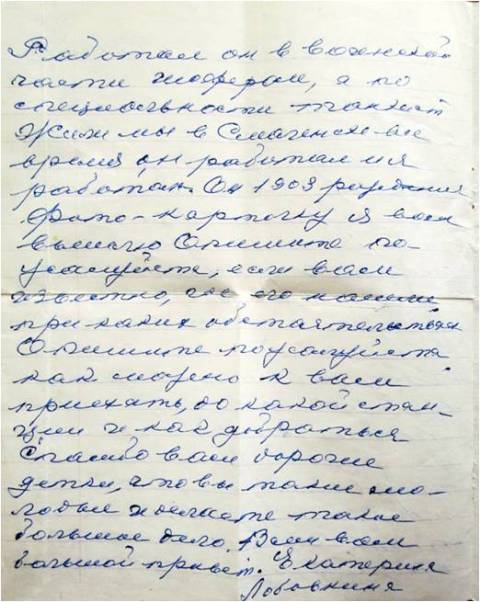 Работал он в военской
части шофером, а по
специальности танкист
Жили мы в Смоленске
время он работал и я
работала. Он 1903 рождения
Фото-карточку я вам
вышлю Опишите по-
жалуйста, если вам
известно, где его нашли
при каких обстоятельствах
Опишите пожалуйста
как можно к вам
приехать, до какой стан-
ции и как добраться
Спасибо вам дорогие
детки, что вы такие мо-
лодые и делаете такое
большое дело. Всем вам
большой привет. Екатерина